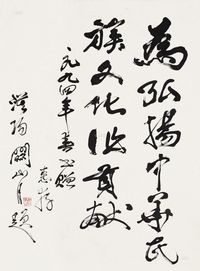 為弘揚中華民
族文化作貢獻
一九九四年
惠存
漠陽關山月題